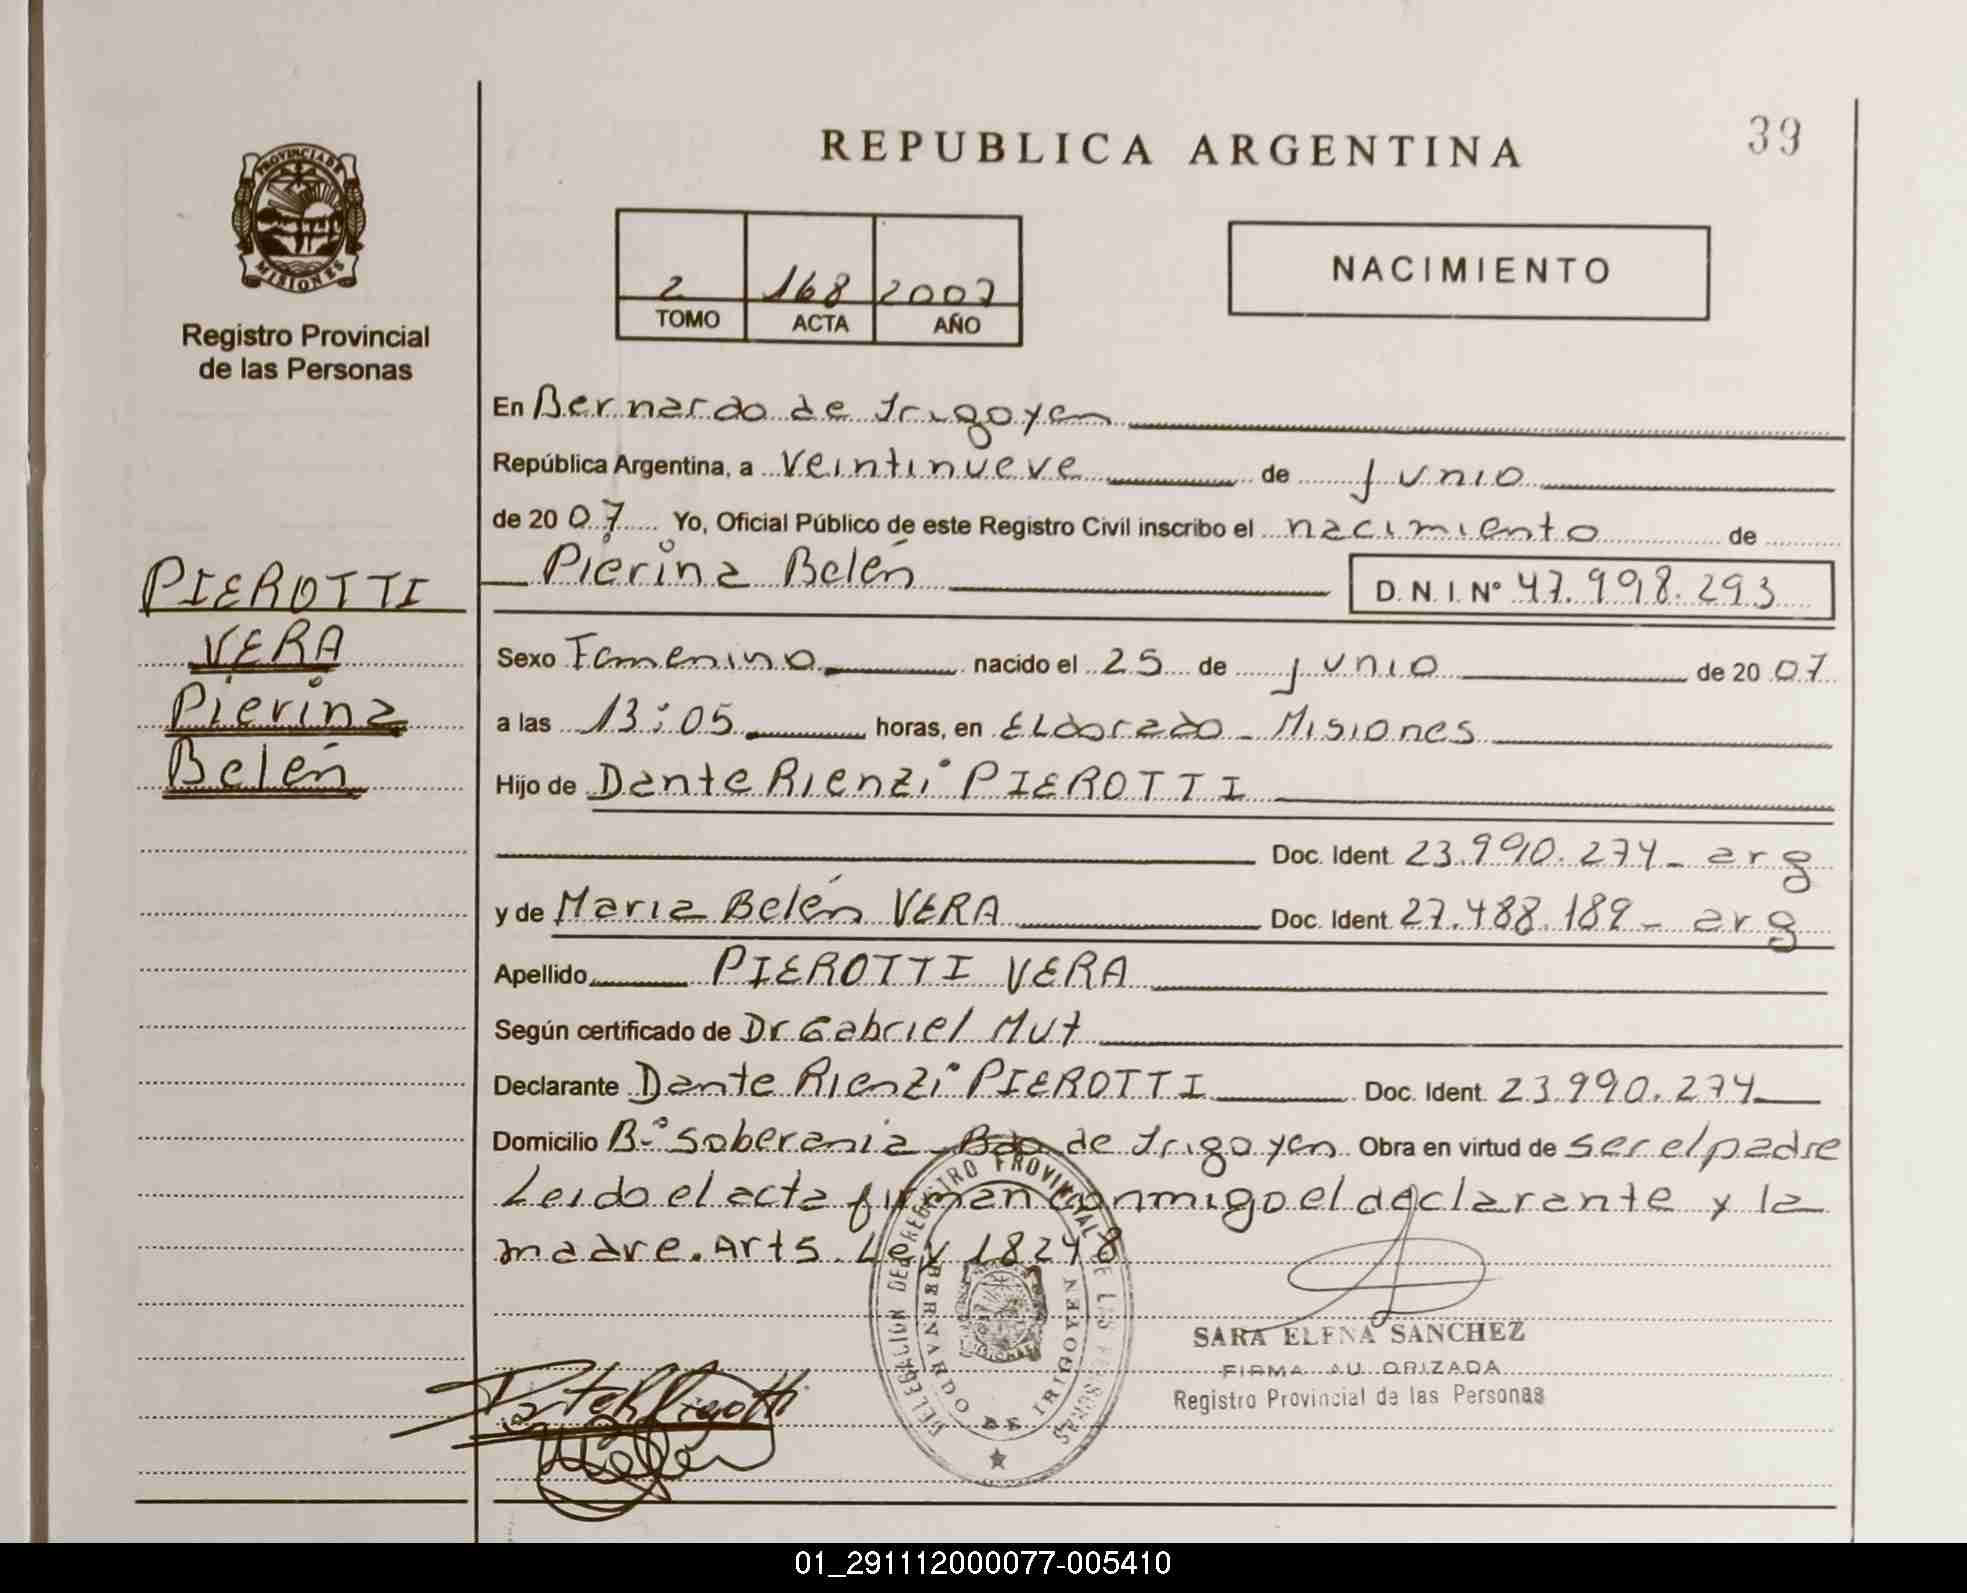 REPUBLICA ARGENTINA
39
PROVINCIA DE
MISIONES
Registro Provincial
de las Personas
2 168 2007
TOMO ACTA AÑO
NACIMIENTO
En Bernardo de Irigoyen
República Argentina, a veintinueve de junio
de 20 07 Yo, Oficial Público de este Registro Civil inscribo el nacimiento de
Pierina Belén D. N. I. Nº 47.998.293
PIEROTTI
VERA
Pierina
Belén
Sexo Femenino nacido el 25 de junio de 20 07
a las 13:05 horas, en Eldorado - Misiones
Hijo de Dante Rienzi PIEROTTI
Doc. Ident. 23.990.274- arg
y de Maria Belén VERA Doc. Ident. 27.488.189- arg
Apellido PIEROTTI VERA
Según certificado de Dr Gabriel Mut
Declarante Dante Rienzi PIEROTTI Doc. Ident. 23.990.274
Domicilio Bº Soberania - Bdo de Irigoyen. Obra en virtud de ser el padre
Leido el acta firman conmigo el declarante y la
madre. Arts. Ley 18248
DELEGACION DEL REGISTRO PROVINCIAL DE LAS PERSONAS
BERNARDO DE IRIGOYEN
SARA ELENA SANCHEZ
FIRMA AUTORIZADA
Registro Provincial de las Personas
01_291112000077-005410